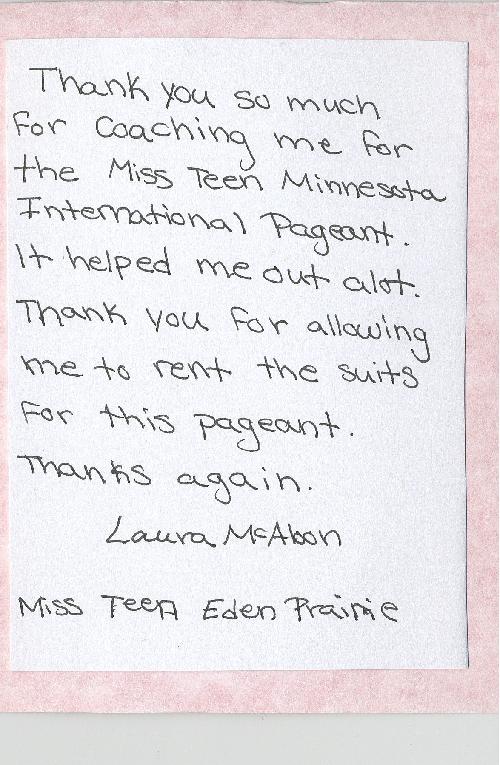 Thank you so much
for coaching me for
the Miss Teen Minnesota
International Pageant.
It helped me out alot.
Thank you for allowing
me to rent the suits
for this pageant.
Thanks again.
Laura McAbon
Miss Teen Eden Prairie